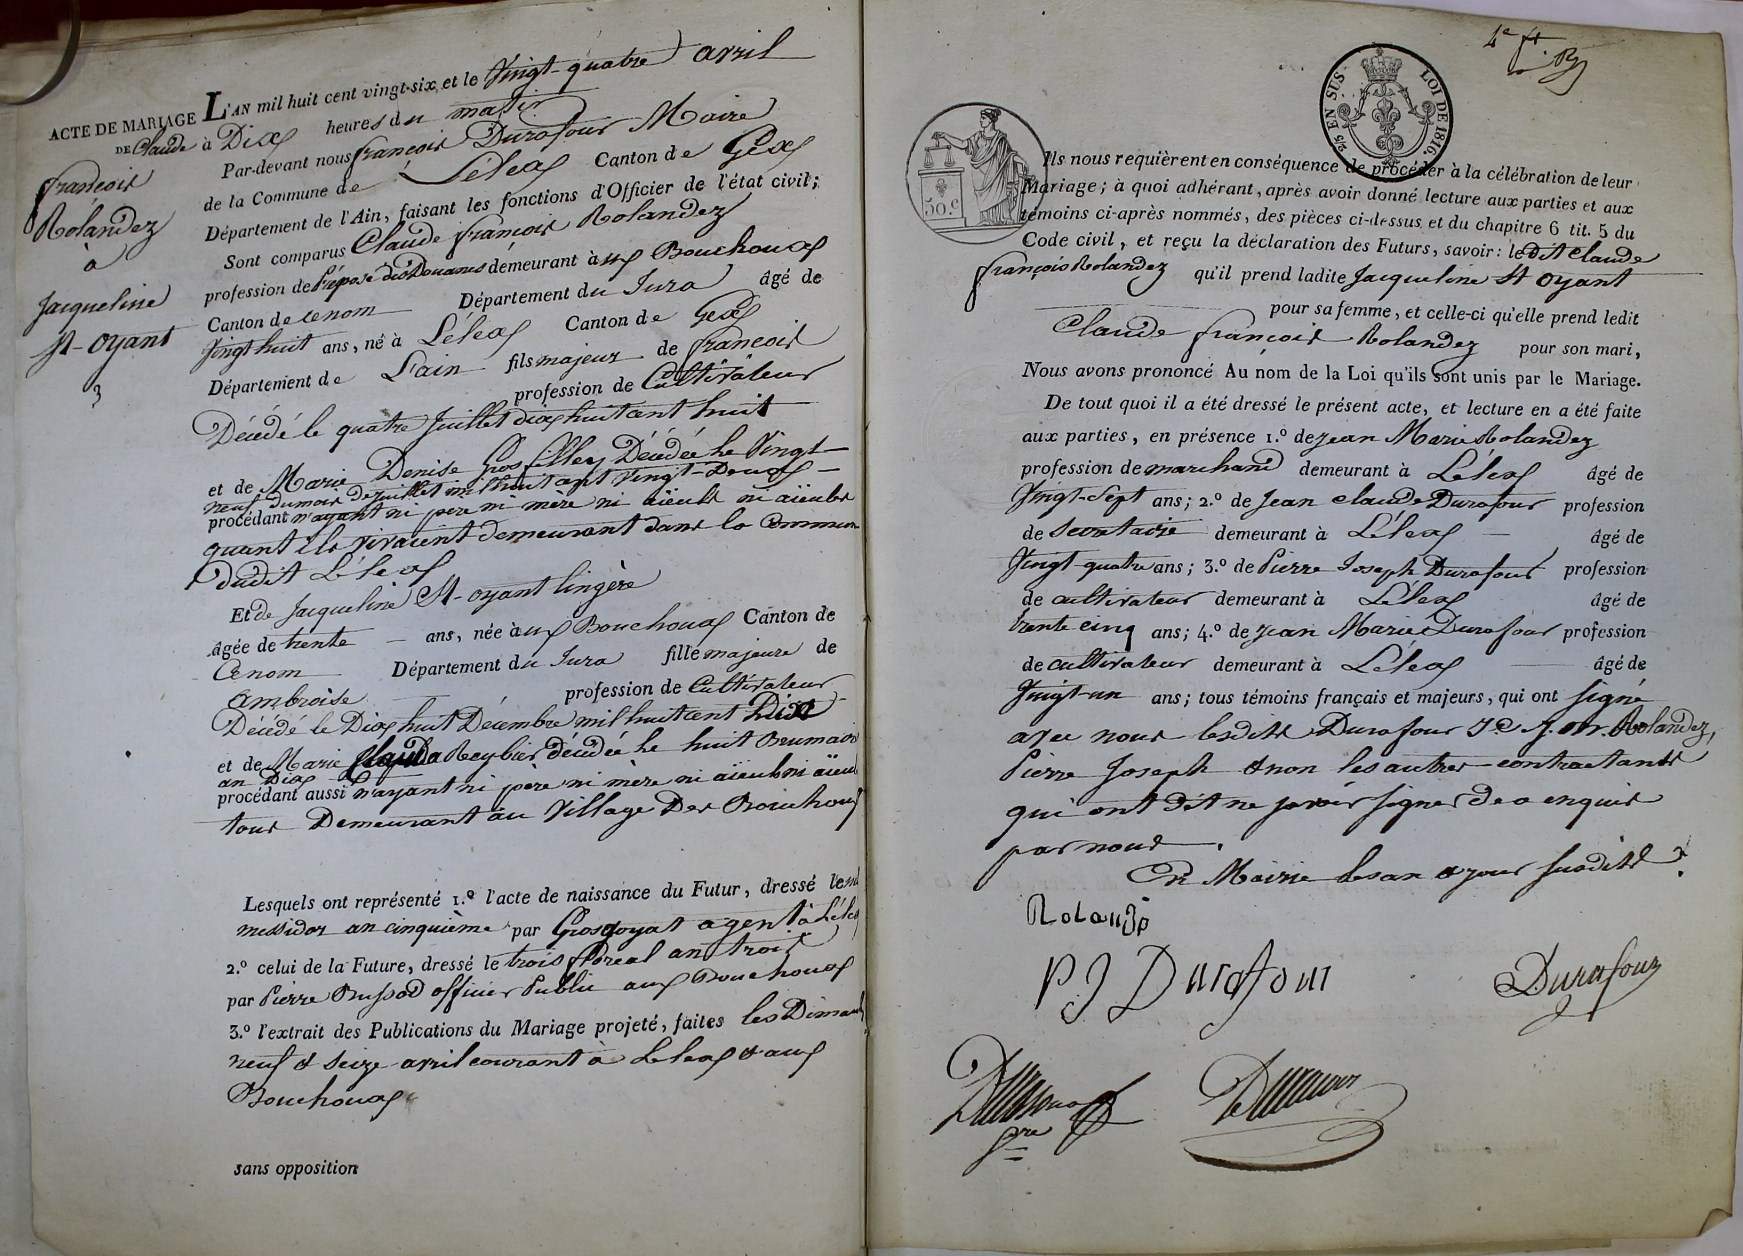 ACTE DE MARIAGE
DE Claude
françois
Rolandez
à
Jacqueline
St-oyant
3
L'AN mil huit cent vingt-six, et le Vingt-quatre avril
à Dix heures du matin
Par-devant nous françois Durafour Maire
de la Commune de Léleax Canton de Gex
Département de l'Ain, faisant les fonctions d'Officier de l'état civil;
Sont comparus Claude françois Rolandez
profession de Préposé des Douanes demeurant aux Bouchoux
Canton de cenom Département du Jura âgé de
Vingt huit ans, né à Léleax Canton de Gex
Département de L'ain fils majeur de francois
profession de Cultivateur
Décédé le quatre Juillet dix huit ant huit
et de Marie Denise Grosfilley Décédée le Vingt
neuf du mois de Juillet mil huit ant Vingt-Deux
procédant n'ayant ni pere ni mère ni aïeuls ni aïeules
quant ils vivaient demeurant dans la Commune
dudit Léleax
Et de Jacqueline St-oyant lingère
âgée de trente ans, née aux Bouchoux Canton de
Cenom Département du Jura fille majeure de
ambroise profession de Cultivateur
Décédé le Dix huit Décembre mil huit cent
et de Marie Reybier, décédée le huit Brumaire
an Dix
procédant aussi n'ayant ni pere ni mère ni aïeuls ni aïeul
tous Demeurant au Village Des Bouchoux
Lesquels ont représenté 1.º l'acte de naissance du Futur, dressé le
messidor an cinquième par Grosgoyat agent à Léleax
2.º celui de la Future, dressé le trois floreal an trois
par Pierre officier Public aux Bouchoux
3.º l'extrait des Publications du Mariage projeté, faites les Dimanch
neuf & seize avril courant à Léleax & aux
Bouchoux
sans opposition
4e ft
2/5 EN SUS. LOI DE 1816.
50.c
Ils nous requièrent en conséquence de procéder à la célébration de leur
Mariage; à quoi adhérant, après avoir donné lecture aux parties et aux
témoins ci-après nommés, des pièces ci-dessus et du chapitre 6 tit. 5 du
Code civil, et reçu la déclaration des Futurs, savoir: ledit Claude
françois Rolandez qu'il prend ladite Jacqueline St oyant
pour sa femme, et celle-ci qu'elle prend ledit
Claude françois Rolandez pour son mari,
Nous avons prononcé Au nom de la Loi qu'ils sont unis par le Mariage.
De tout quoi il a été dressé le présent acte, et lecture en a été faite
aux parties, en présence 1.º de jean Marie Rolandez
profession de marchand demeurant à Léleax âgé de
Vingt-sept ans; 2.º de Jean claude Durafour profession
de secretaire demeurant à Léleax âgé de
Vingt-quatre ans; 3.º de Pierre Joseph Durafour profession
de cultivateur demeurant à Léleax âgé de
trente cinq ans; 4.º de jean Marie Durafour profession
de cultivateur demeurant à Léleax âgé de
Vingt-un ans; tous témoins français et majeurs, qui ont signé
avec nous lesdits Durafour J.C J.M. Rolandez,
Pierre Joseph & non les autres contractants
qui ont dit ne savoir signer de ce enquis
par nous.
En Mairie les an & jour susdits
Rolandez
P J Durafour
Durafour
Durafour
Sre
Durafour